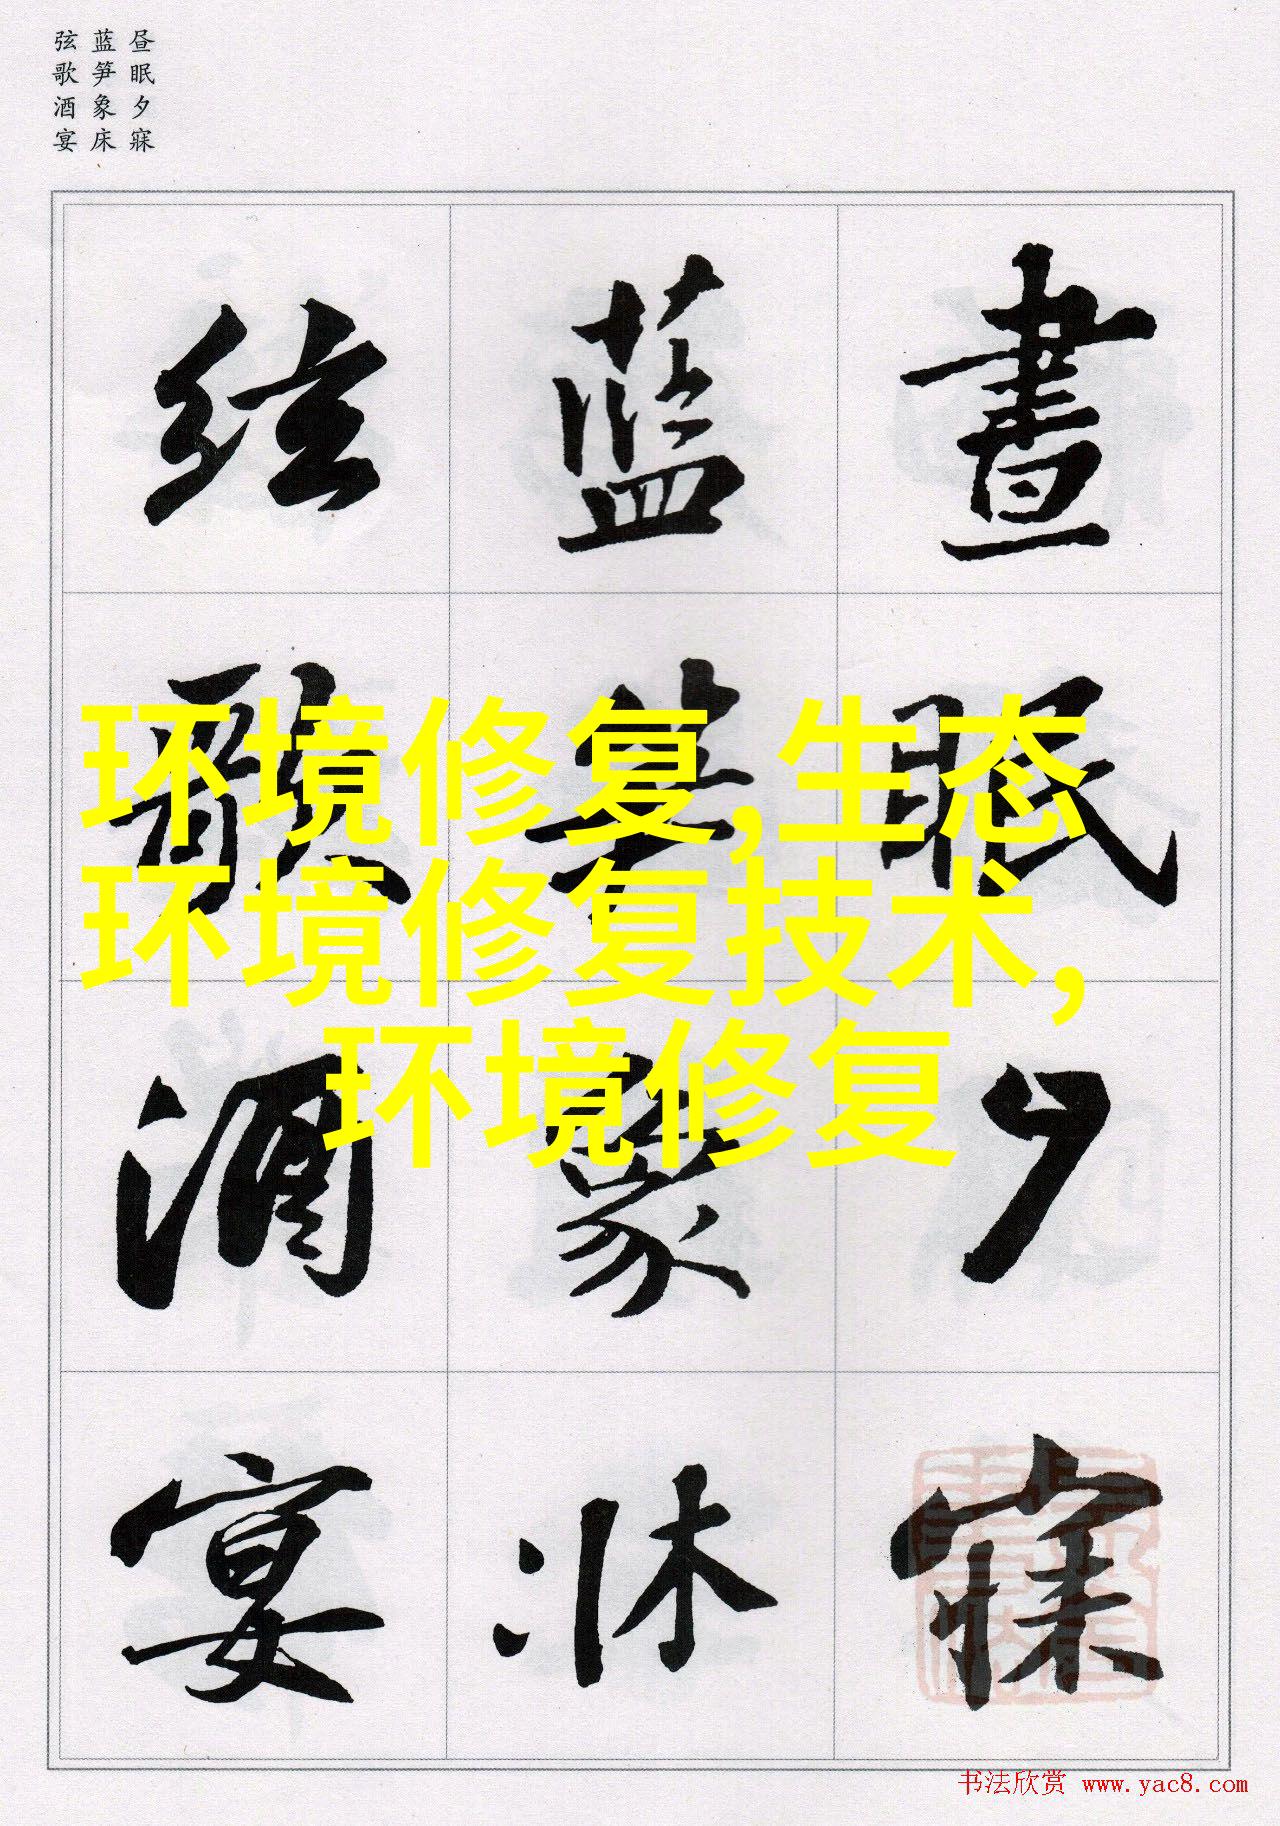 昼眠夕寐
蓝笋象床
弦歌酒宴
晝眠夕寐
藍笋象牀
弦歌酒宴
环境修复,生态
环境修复技术,
环境修复
书法欣赏 www.yac8.com